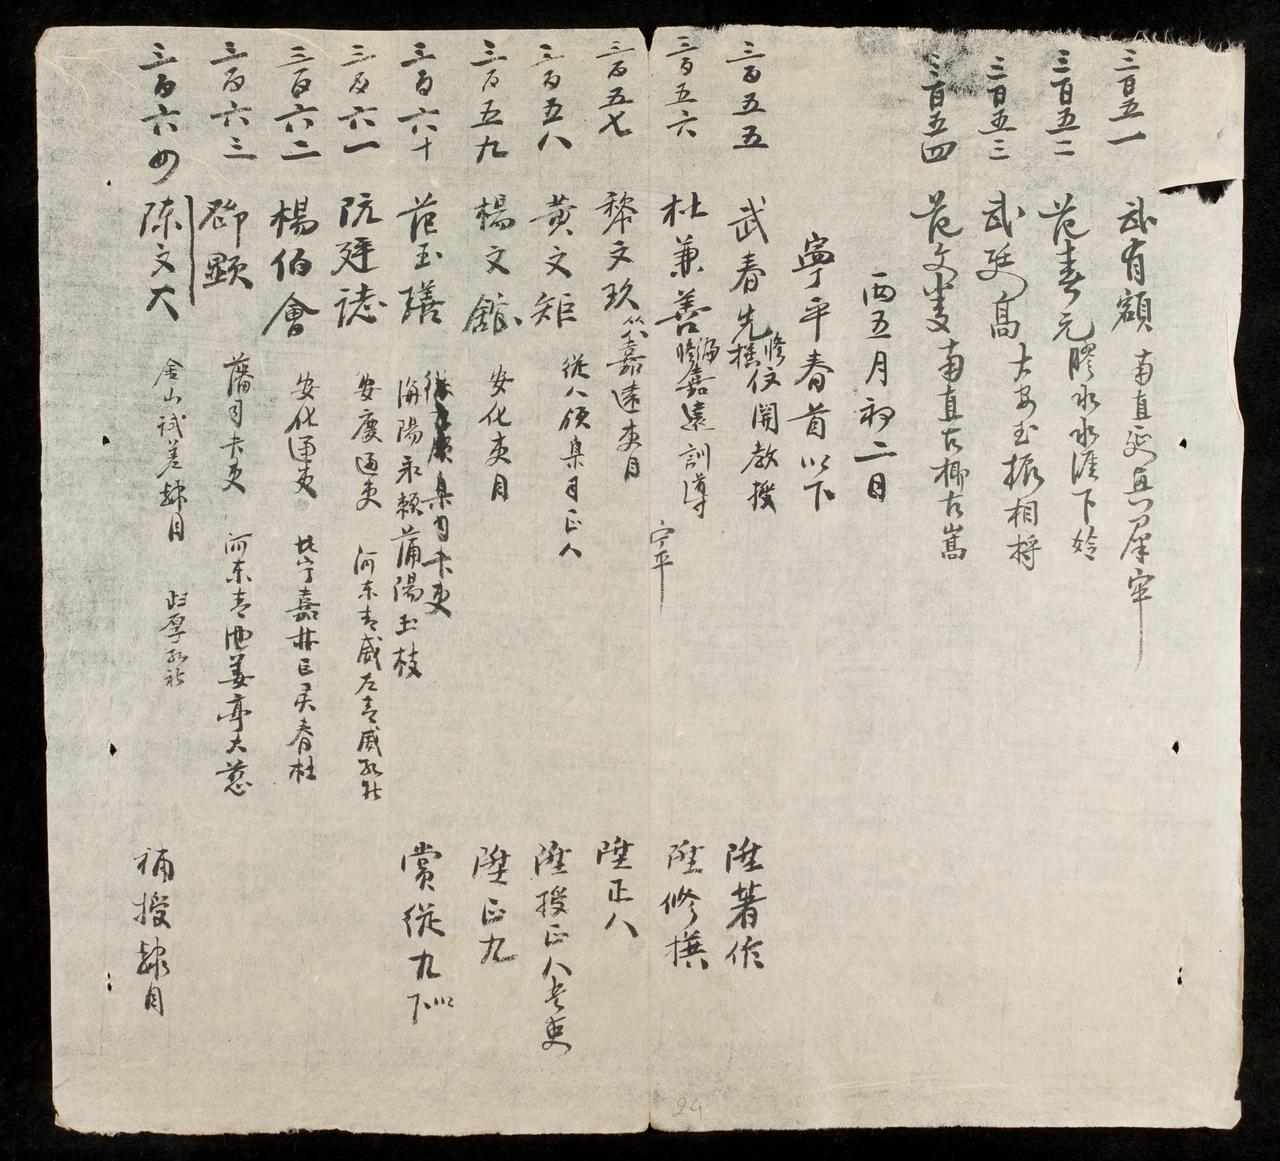 三百五一 武有額 南直延興群牢
三百五二 范春元 膠水水涯下姈
三百五三 武廷高 大安玉振相将
三百五四 范文叟 南直古椰古嵩
丙五月初二日
寧平春首以下
三百五五 武春先 修撰 開教授 陞著作
三百五六 杜兼善 嘉遠訓導 宁平 陞修撰
三百五七 黎文玖 嘉遠吏目 陞正八
三百五八 黄文矩 從八領臬司正八 陞授正八吏
三百五九 楊文館 安化吏目 陞正九
三百六十 范玉璿 臬司未吏 海陽永賴蒲陽玉枝 賞從九 以下
三百六一 阮廷誌 安慶通吏 河東青威左青威
三百六二 楊伯會 安化通吏 北宁嘉林巨灵春杜
三百六三 鄧顕 藩司未吏 河东青池姜亭大慈
三百六四 陈文大 金山試差隷目 補授隷目
24